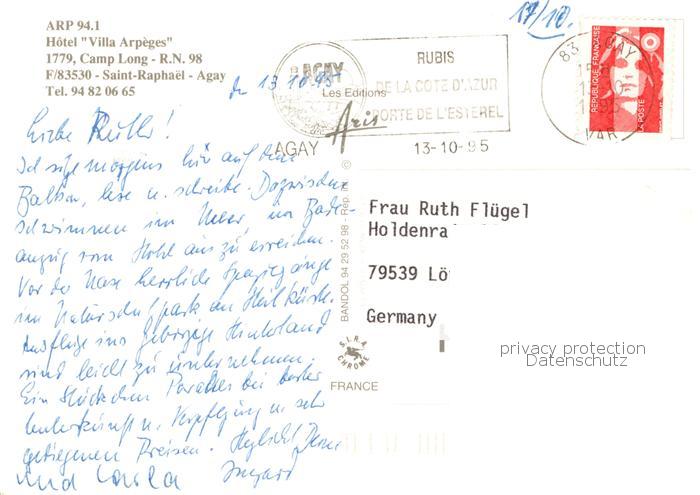 ARP 94.1
Hôtel "Villa Arpèges"
1779, Camp Long - R.N. 98
F/83530 - Saint-Raphaël - Agay
Tel. 94 82 06 65
17/10.
13 10 95
AGAY
Les Editions
Aris
AGAY
RUBIS
DE LA COTE D'AZUR
PORTE DE L'ESTEREL
13-10-95
83 AGAY
VAR
REPUBLIQUE FRANÇAISE
LA POSTE
Liebe Ruth!
Ich sitze morgens hier auf dem
Balkon, lese u. schreibe. Dazwischen
schwimmen im Meer, im Bade-
anzug vom Hotel aus zu erreichen.
Vor der Nase herrliche Spaziergänge
im Naturschutzpark an Steilküste.
Ausflüge ins gebirgige Hinterland
sind leicht zu unternehmen.
Ein Stückchen Paradies bei bester
Unterkunft u. Verpflegung u. sehr
gediegenen Preisen. Herzlichst Deine
und Carla Irmgard
BANDOL 94 29 52 98 - Rep. int. ©
S.I.R.A.
CHROME
FRANCE
Frau Ruth Flügel
Holdenra
79539 Lö
Germany
privacy protection
Datenschutz